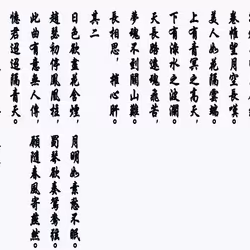 卷帷望月空長嘆。
美人如花隔雲端。
上有青冥之高天，
下有淥水之波瀾。
天長路遠魂飛苦，
夢魂不到關山難。
長相思，摧心肝。
其二
日色欲盡花含煙，月明如素愁不眠。
趙瑟初停鳳凰柱，蜀琴欲奏鴛鴦弦。
此曲有意無人傳，願隨春風寄燕然。
憶君迢迢隔青天。